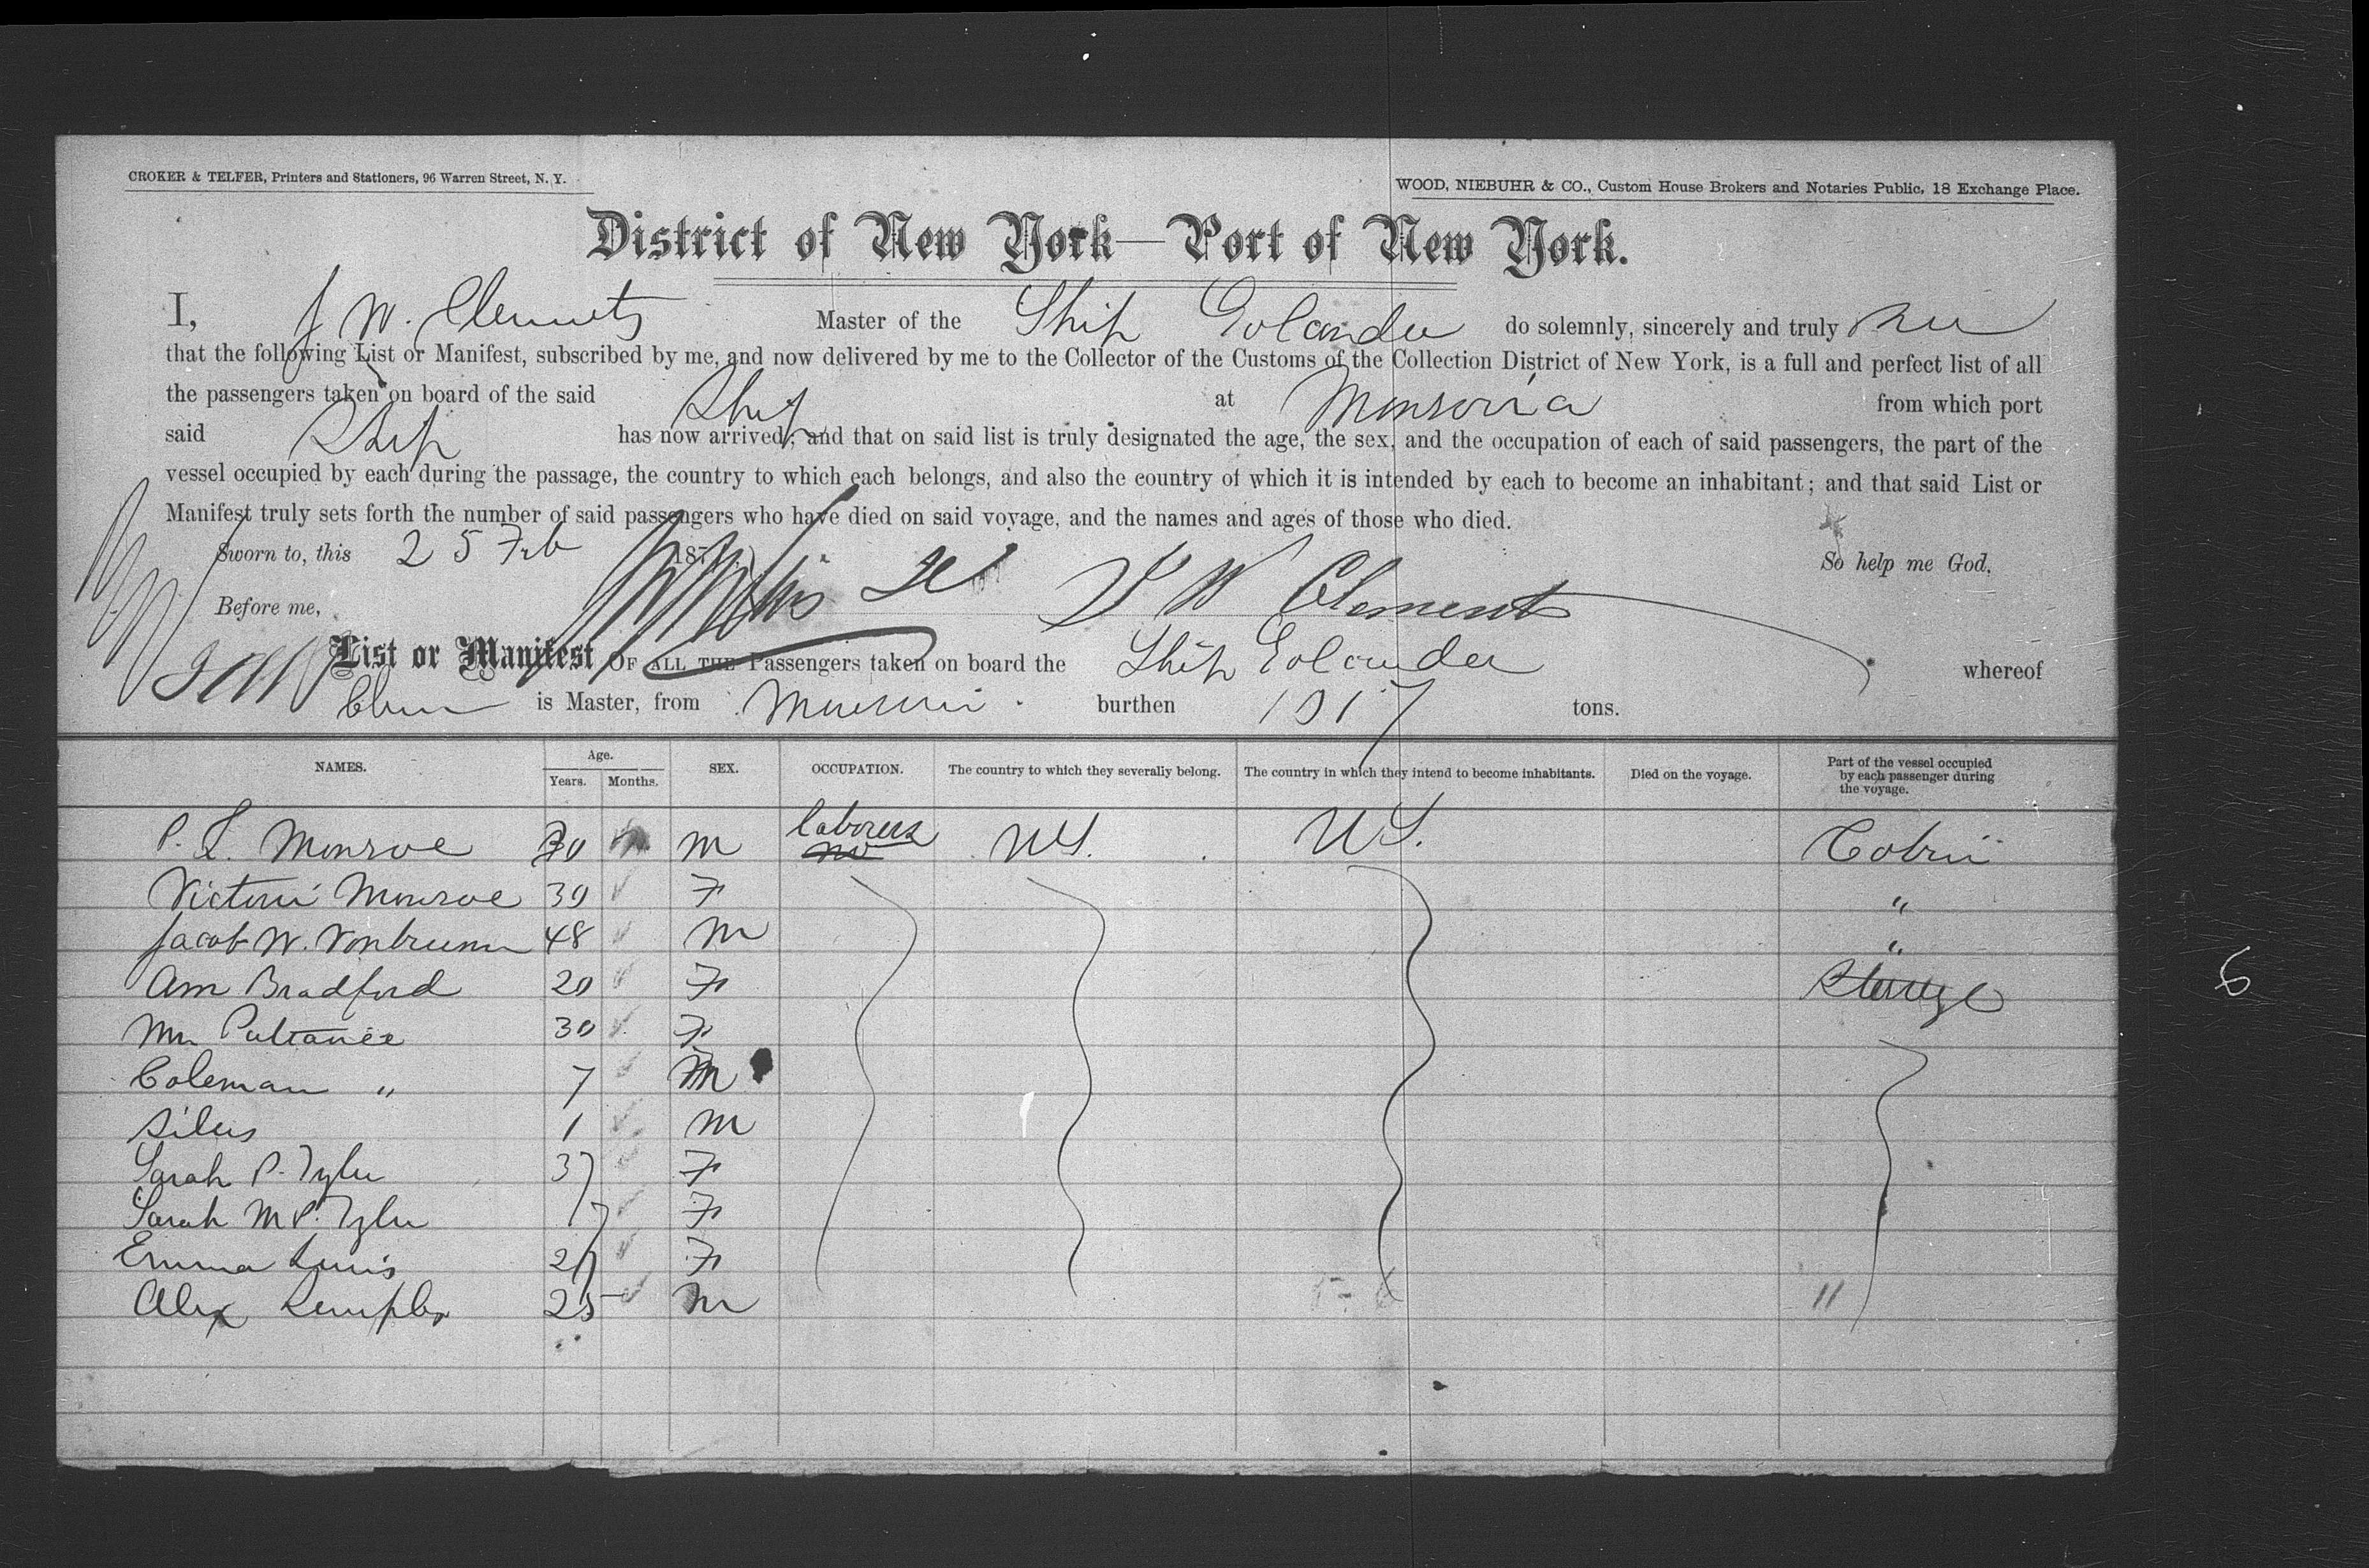 CROKER & TELFER, Printers and Stationers, 96 Warren Street, N. Y.
WOOD, NIEBUHR & CO., Custom House Brokers and Notaries Public, 18 Exchange Place.
District of New York—Port of New York.
I, J W. Clements Master of the Ship do solemnly, sincerely and truly
that the following List or Manifest, subscribed by me, and now delivered by me to the Collector of the Customs of the Collection District of New York, is a full and perfect list of all
the passengers taken on board of the said Ship at Monrovia from which port
said Ship has now arrived; and that on said list is truly designated the age, the sex, and the occupation of each of said passengers, the part of the
vessel occupied by each during the passage, the country to which each belongs, and also the country of which it is intended by each to become an inhabitant; and that said List or
Manifest truly sets forth the number of said passengers who have died on said voyage, and the names and ages of those who died.
Sworn to, this 25 Feb 187 So help me God,
Before me, J W Clements
List or Manifest OF ALL THE Passengers taken on board the Ship whereof
is Master, from burthen 1017 tons.
NAMES. Age. Years. Months. SEX. OCCUPATION. The country to which they severally belong. The country in which they intend to become inhabitants. Died on the voyage. Part of the vessel occupied by each passenger during the voyage.
P. L. Monroe 30 M laborers US. US. Cabin
Victori Monroe 30 F "
Jacob W. Vonbrunn 48 M "
Ann Bradford 20 F Steerage
30 F
Coleman " 7 M
Silus 1 M
Sarah P. Tyler 37 F
Sarah M P. Tyler 17 F
Emma Lewis 27 F
Alex 25 M 11
6